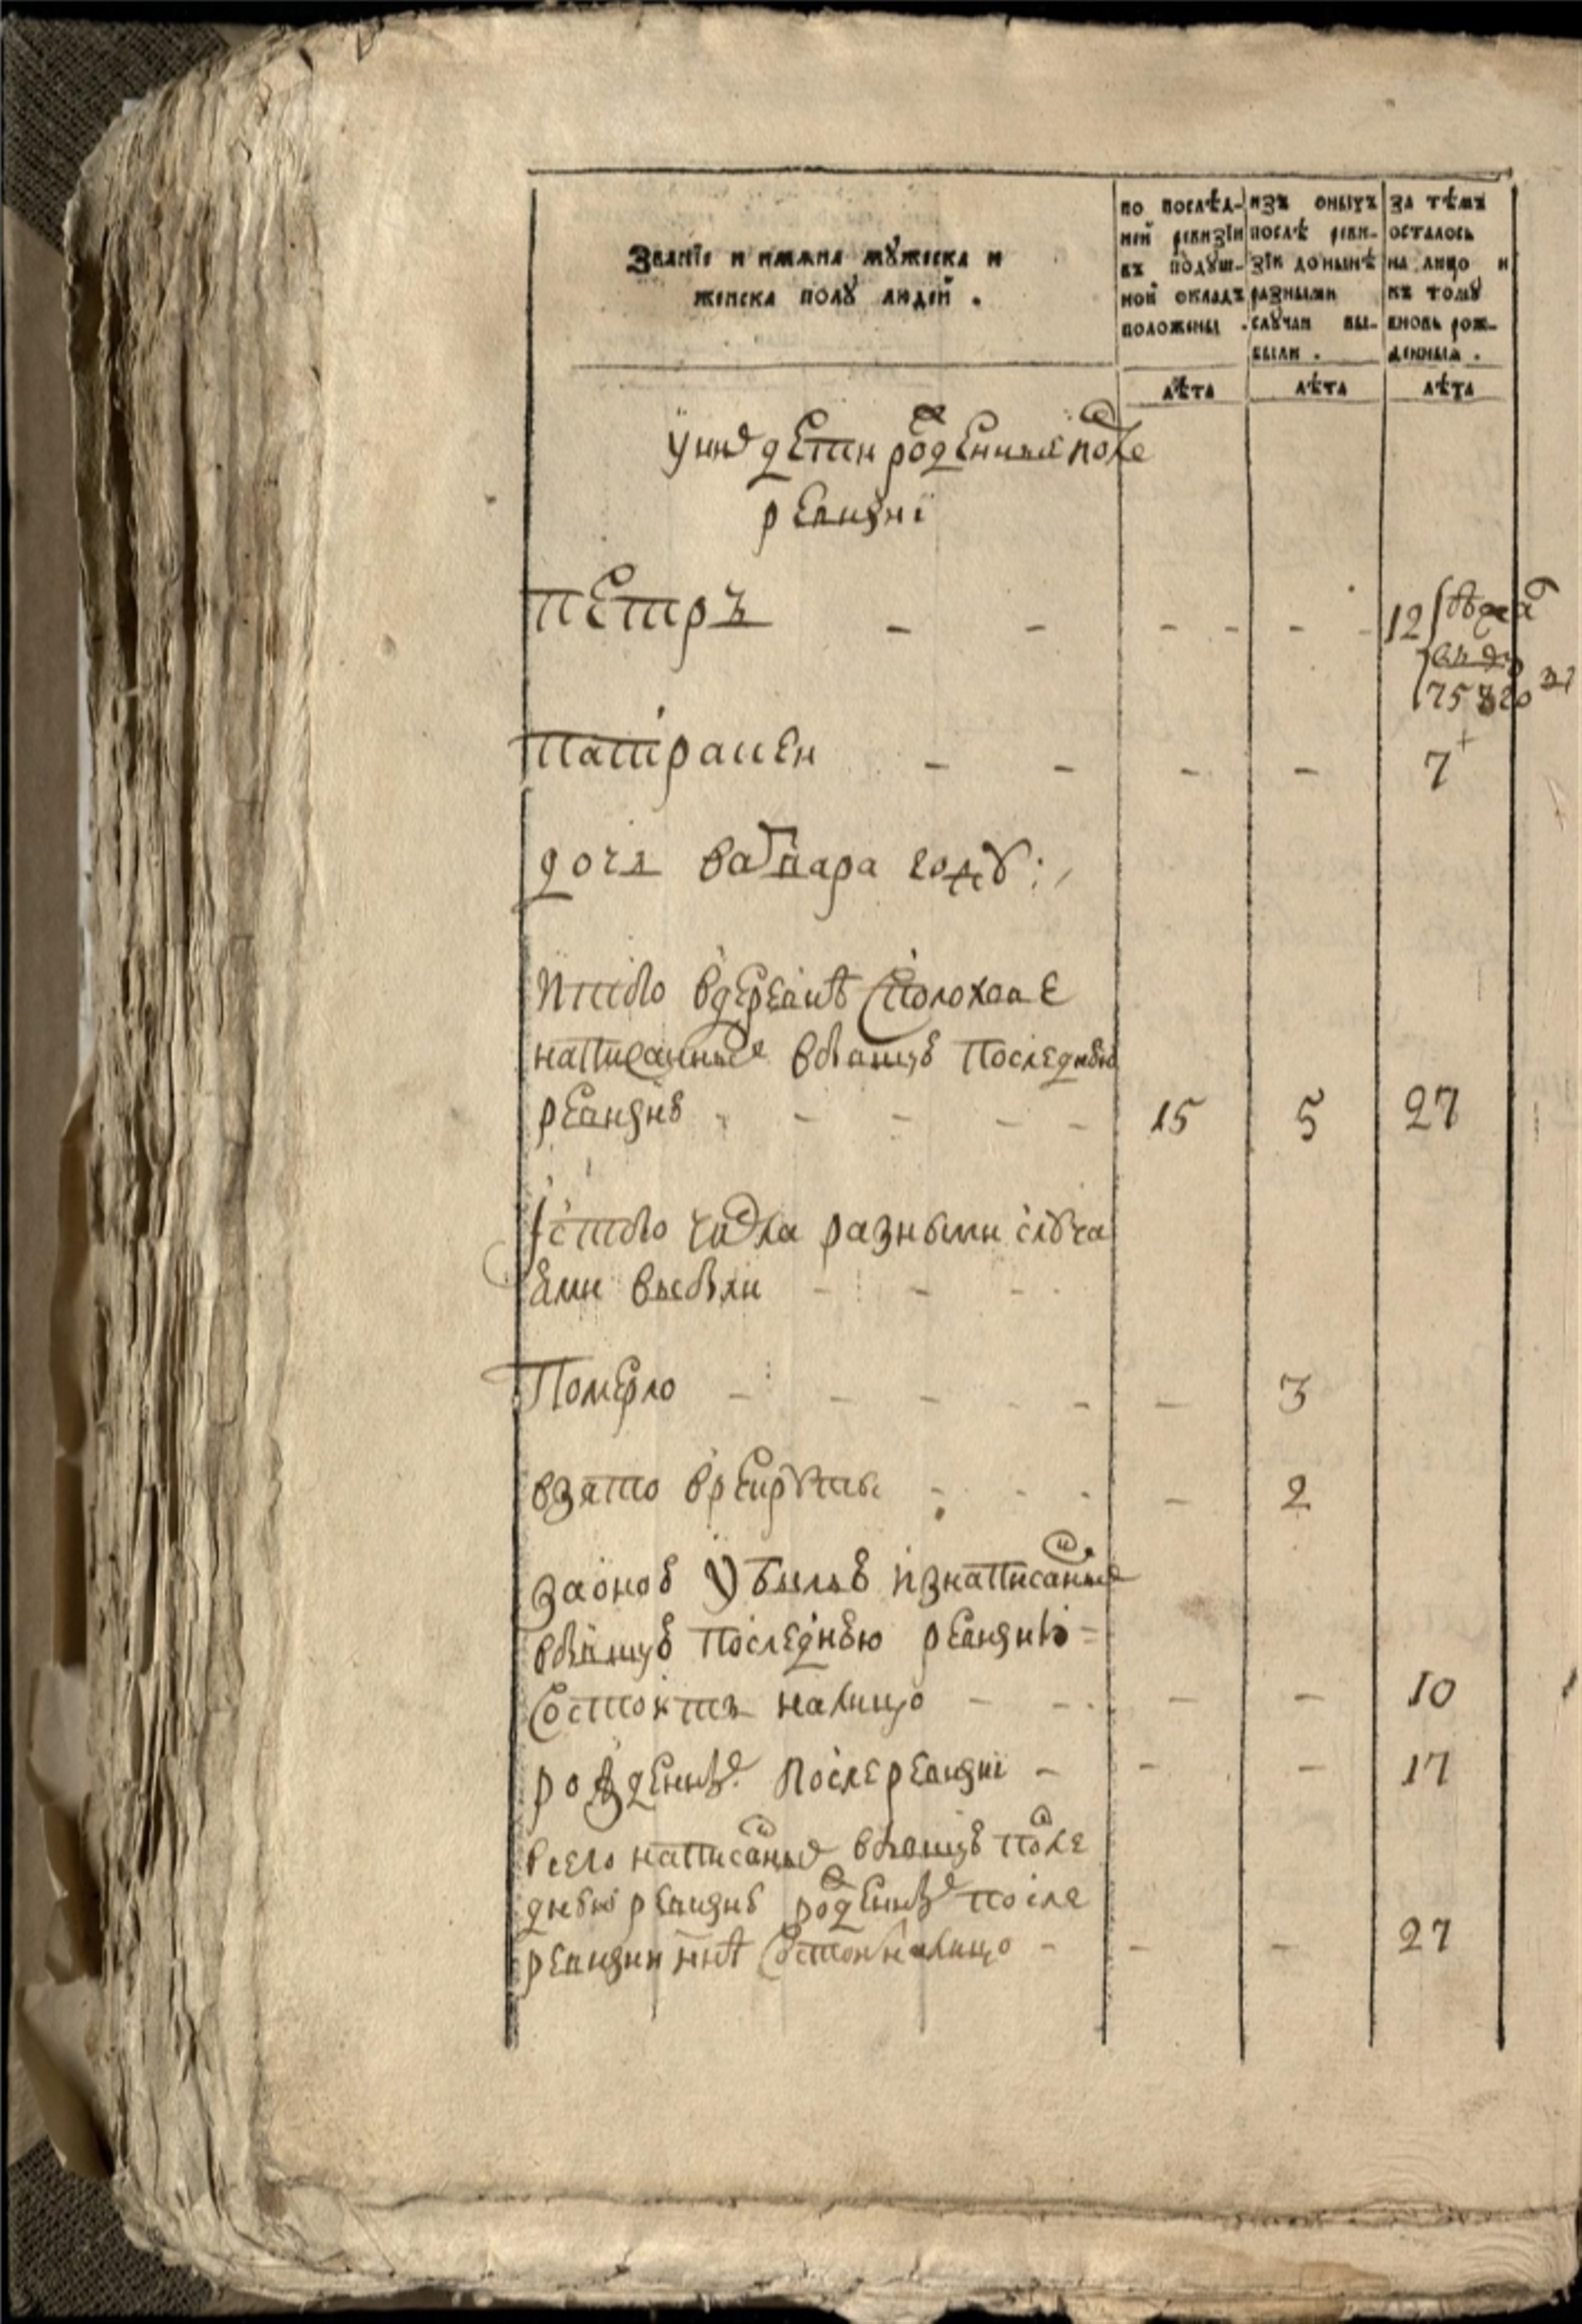 Званїе и имяна мꙋжеска и
женска полꙋ людей .
по послѣд-
ней ревизїи
въ подꙋш-
ной окладъ
положены .
изъ оныхъ
послѣ реви-
зїи донынѣ
разными
слꙋчаи вы-
были .
за тѣмъ
осталось
на лицо и
къ томꙋ
вновь рож-
денныя .
лѣта
лѣта
лѣта
у них дети рожденныя после
ревизиї
Петръ - - - - - 12
Патракеи - - - - 7
дочь Варвара году
Итого вдеревнѣ
написанных вбывшую последнюю
ревизию - - - - 15 5 27
Ис того числа разными слꙋча
ями выбыли - - -
Померло - - - - - - 3
взято врекрꙋты - - - - 2
заоною убылью изнаписанных
вбывшую последнюю ревизию
состоитъ налицо - - - - 10
рожденных послеревизиї - - - 17
всего написанных вбывшую после
днюю ревизию рожденных после
ревизии ннѣ состоит налицо - - - 27